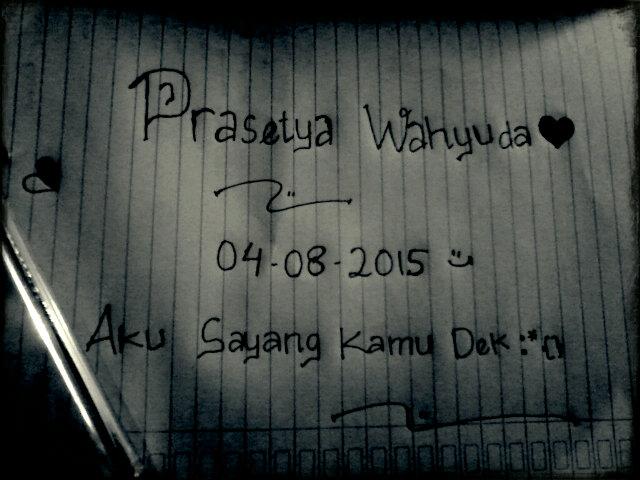 Prasetya Wahyuda♥
04-08-2015
Aku Sayang Kamu Dek :*{}